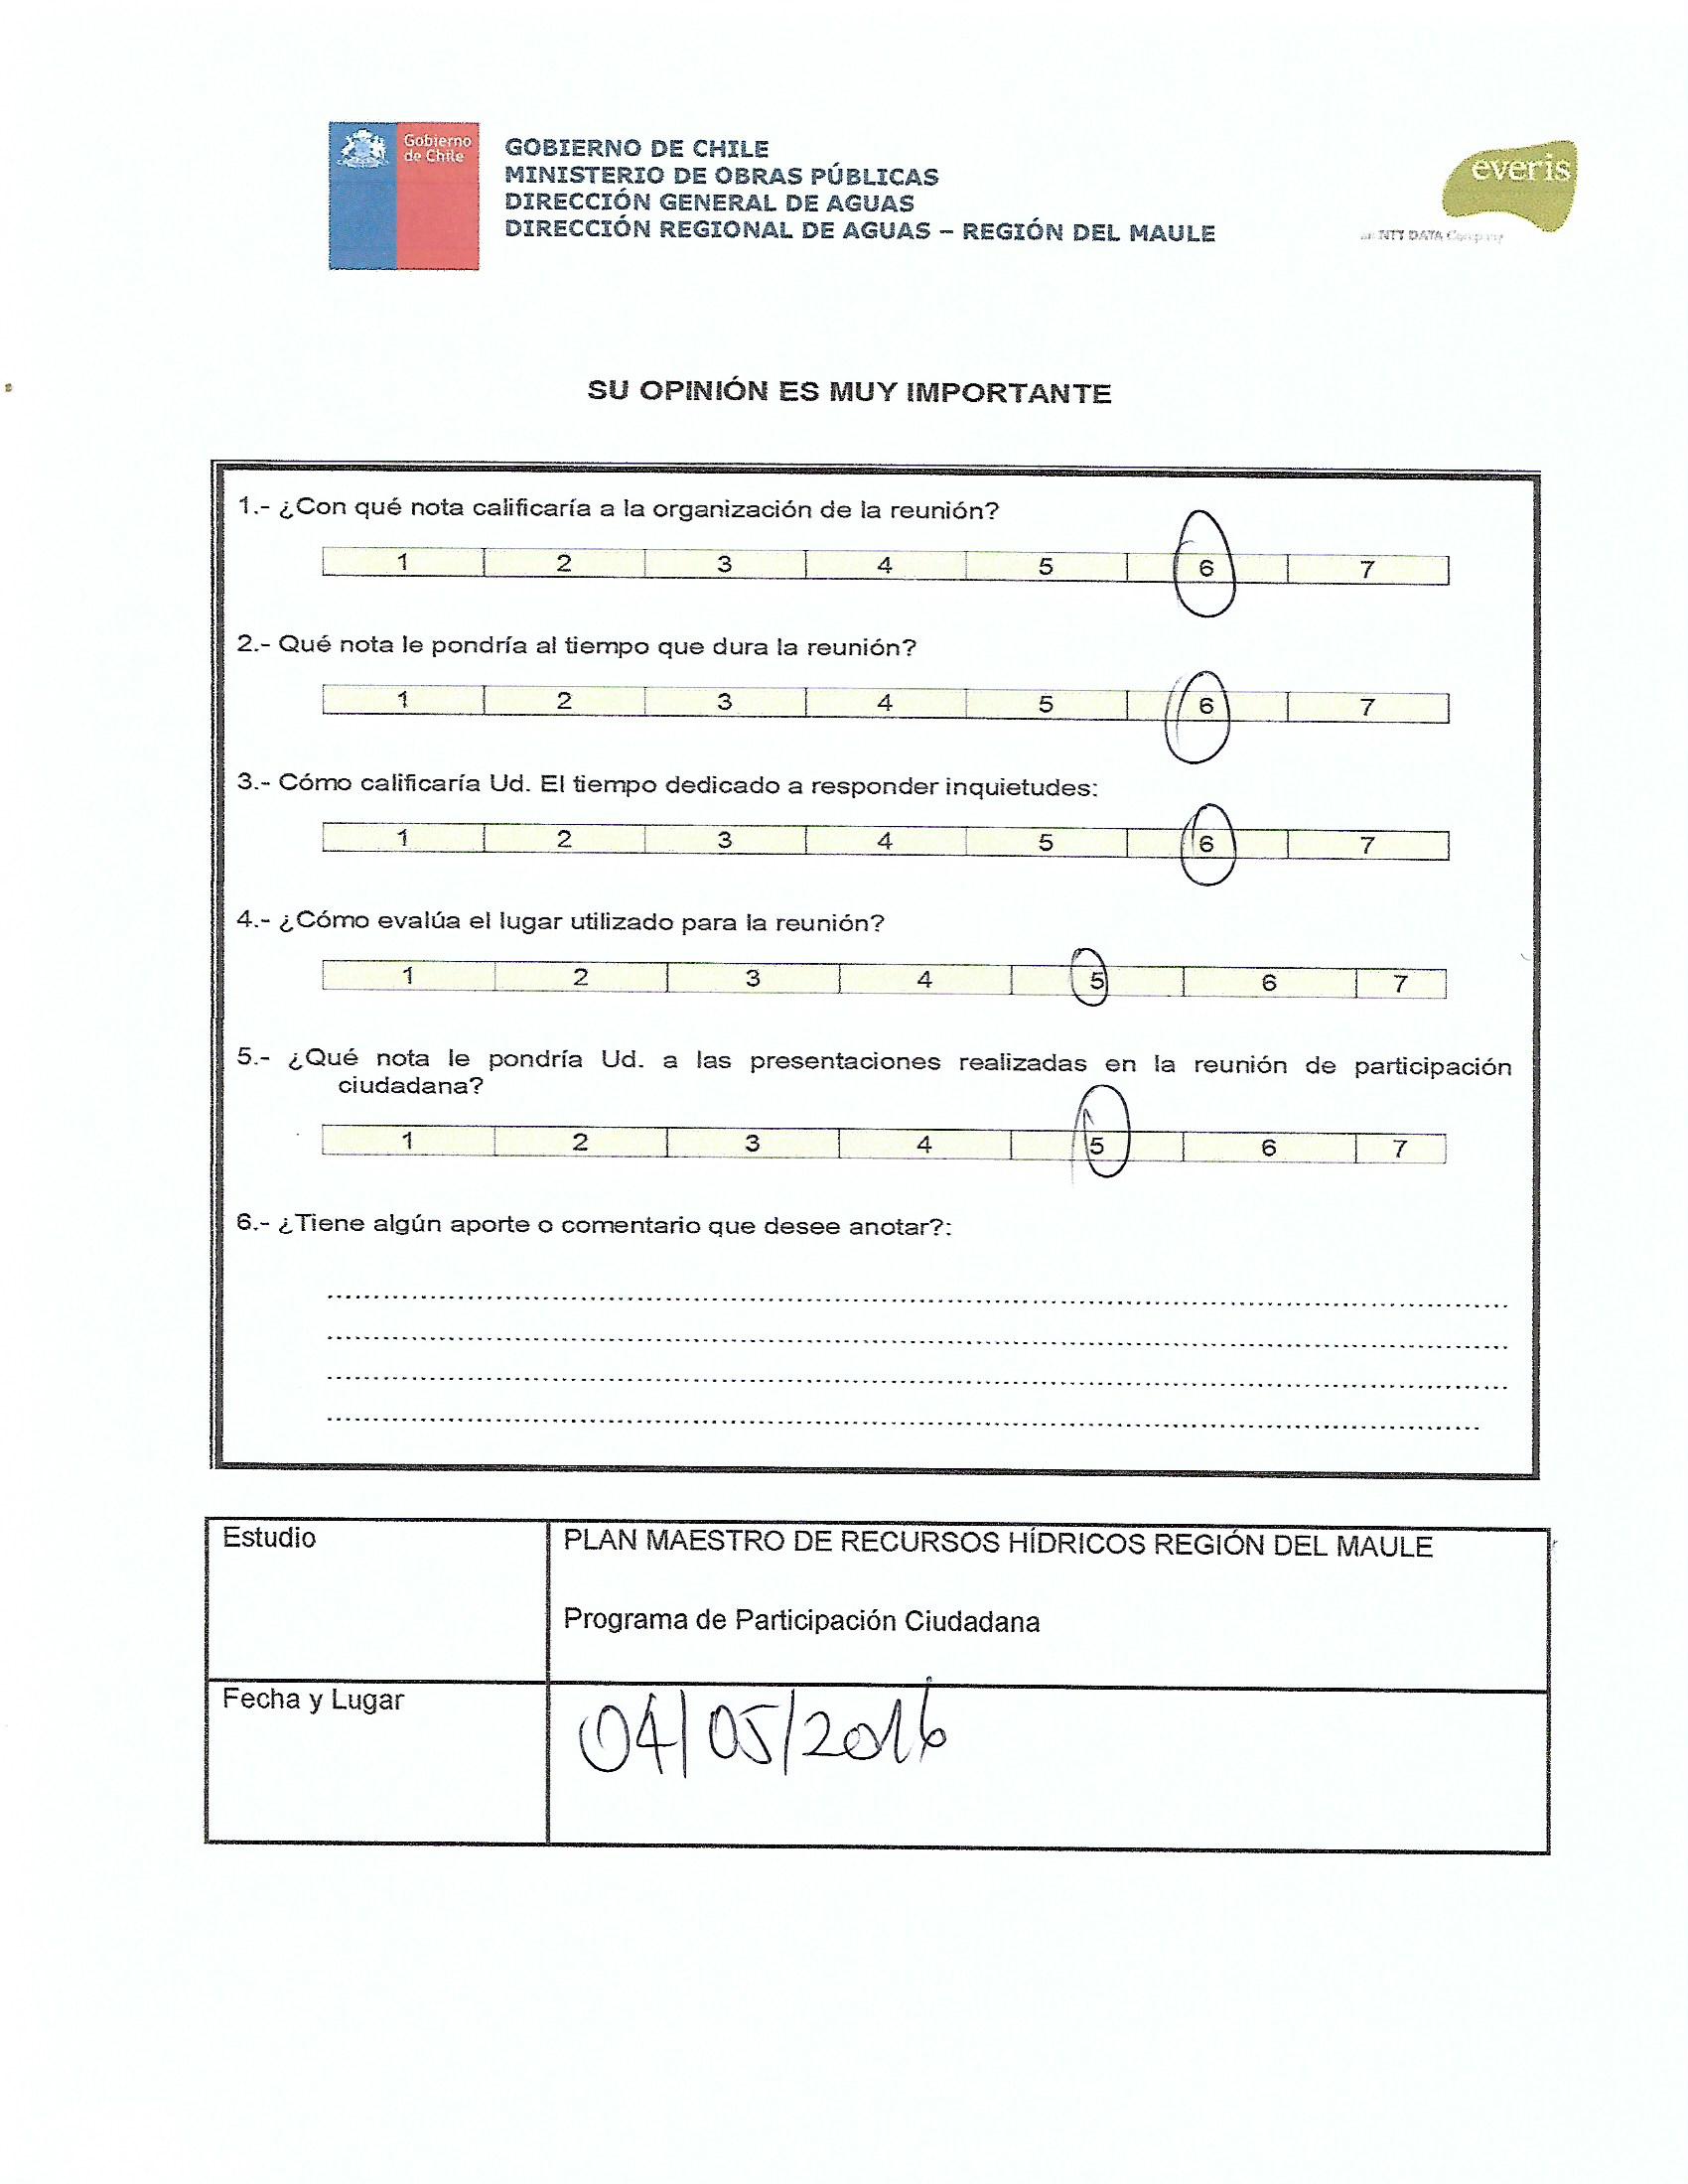 Gobierno
de Chile
GOBIERNO DE CHILE
MINISTERIO DE OBRAS PÚBLICAS
DIRECCIÓN GENERAL DE AGUAS
DIRECCIÓN REGIONAL DE AGUAS – REGIÓN DEL MAULE
everis
an NTT DATA Company
SU OPINIÓN ES MUY IMPORTANTE
1.- ¿Con qué nota calificaría a la organización de la reunión?
1 2 3 4 5 6 7
2.- Qué nota le pondría al tiempo que dura la reunión?
1 2 3 4 5 6 7
3.- Cómo calificaría Ud. El tiempo dedicado a responder inquietudes:
1 2 3 4 5 6 7
4.- ¿Cómo evalúa el lugar utilizado para la reunión?
1 2 3 4 5 6 7
5.- ¿Qué nota le pondría Ud. a las presentaciones realizadas en la reunión de participación
ciudadana?
1 2 3 4 5 6 7
6.- ¿Tiene algún aporte o comentario que desee anotar?:
Estudio
PLAN MAESTRO DE RECURSOS HÍDRICOS REGIÓN DEL MAULE
Programa de Participación Ciudadana
Fecha y Lugar
04/05/2016